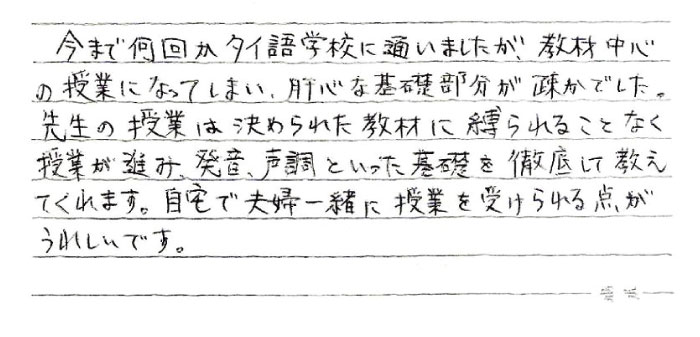 今まで何回かタイ語学校に通いましたが、教材中心
の授業になってしまい、肝心な基礎部分が疎かでした。
先生の授業は決められた教材に縛られることなく
授業が進み、発音、声調といった基礎を徹底して教え
てくれます。自宅で夫婦一緒に授業を受けられる点が
うれしいです。